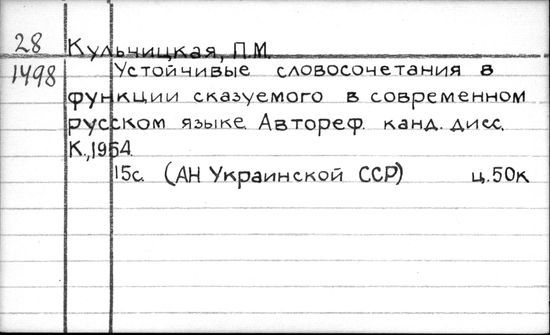 28 Кульчицкая, П.М.
1498 Устойчивые словосочетания в
функции сказуемого в современном
русском языке. Автореф. канд. дисс.
К.,1954.
15с. (АН Украинской ССР) ц.50к